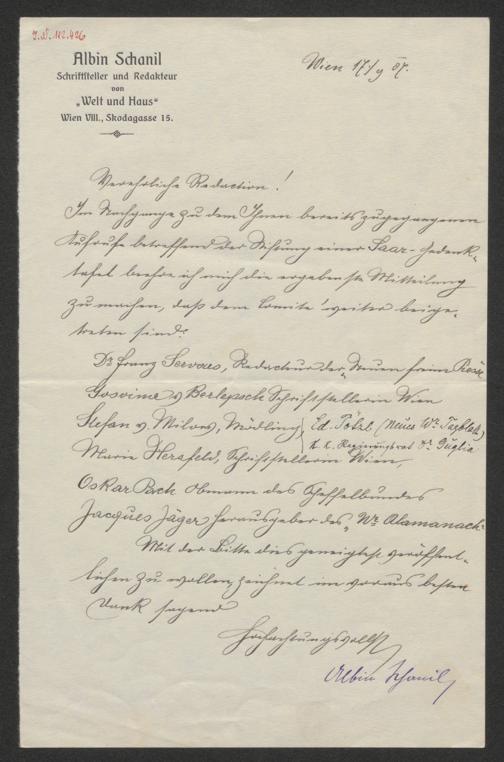 J. N. 112.426
Albin Schanil
Schriftsteller und Redakteur
von
„Welt und Haus“
Wien VIII., Skodagasse 15.
Wien 17/9 07.
Verehrliche Redaction!
Im Nachgange zu dem Ihnen bereits zugegangenen
Aufrufe betreffend der Stiftung einer Saar-Gedenk-
tafel beehre ich mich die ergebenste Mitteilung
zu machen, daß dem Comité weiter beige-
treten sind:
Dr Franz Servaes, Redacteur der „Neuen freien Presse
Gosvine v Berlepsch Schriftstellerin Wien
Stefan v. Milow, Mödling, Ed. Pötzl (Neues Wr. Tagblatt)
k. k. Regierungsrat Dr. Guglia
Marie Herzfeld, Schriftstellerin Wien,
Oskar Pach Obmann des Scheffelbundes
Jacques Jäger Herausgeber des „Wr Alamanach“
Mit der Bitte dies geneigtest veröffent-
lichen zu wollen, zeichnet im voraus besten
Dank sagend
Hochachtungsvollst
Albin Schanil